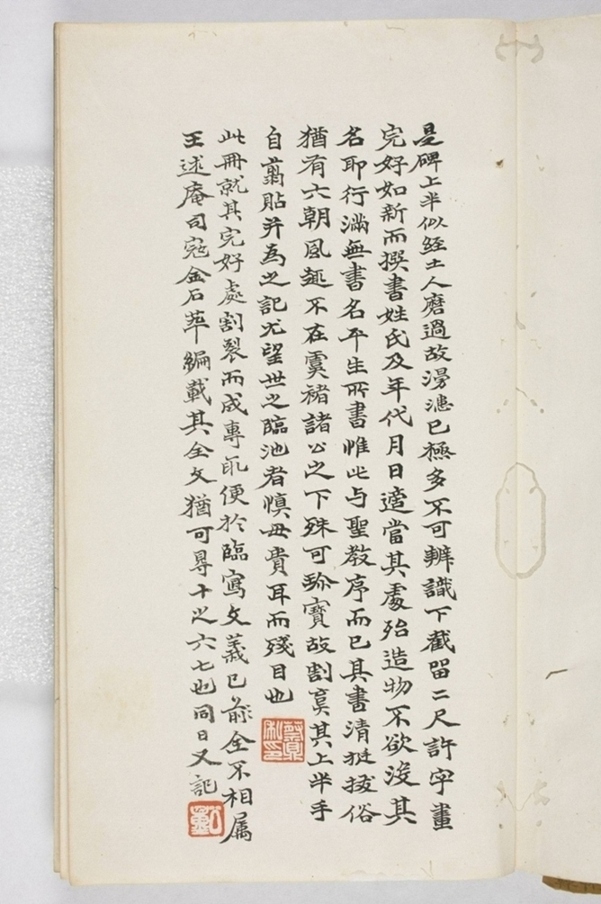 是碑上半似經土人磨過故漫漶已極多不可辨識下截留二尺許字畫
完好如新而撰書姓氏及年代月日適當其處殆造物不欲沒其
名耶行滿無書名平生所書惟此与聖教序而已其書清挺拔俗
猶有六朝風趣不在虞褚諸公之下殊可珍寶故割棄其上半手
自翦貼并為之記尤望世之臨池者慎毋貴耳而殘目也
此冊就其完好處割裂而成專取便於臨寫文義已前全不相屬
王述庵司寇金石萃編載其全文猶可尋十之六七也同日又記